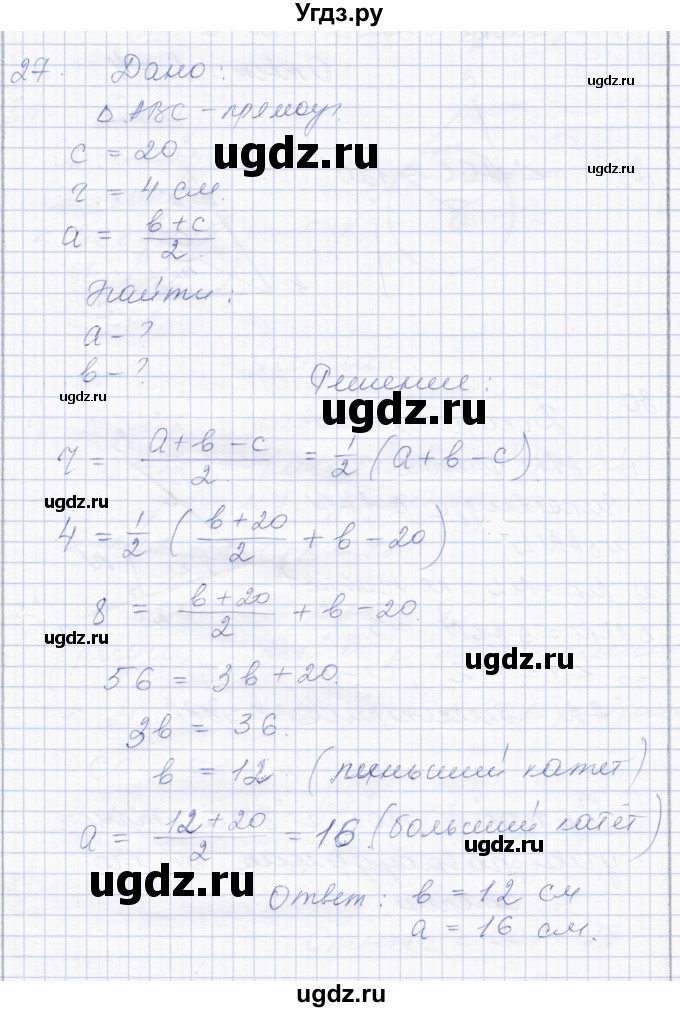 Угдз.ру
27. Дано:
ugdz.ru
Δ ABC – прямоуг.
ugdz.ru
c = 20
ugdz.ru
r = 4 см.
a = \frac{b+c}{2}.
Найти:
a – ?
b – ?
Решение:
ugdz.ru
r = \frac{a+b-c}{2} = \frac{1}{2} (a+b-c).
ugdz.ru
4 = \frac{1}{2} (\frac{b+20}{2} + b – 20)
8 = \frac{b+20}{2} + b – 20.
ugdz.ru
ugdz.ru
56 = 3b + 20.
3b = 36.
b = 12 (меньший катет)
a = \frac{12+20}{2} = 16. (больший катет)
ugdz.ru
ugdz.ru
Ответ: b = 12 см
a = 16 см.
ugdz.ru